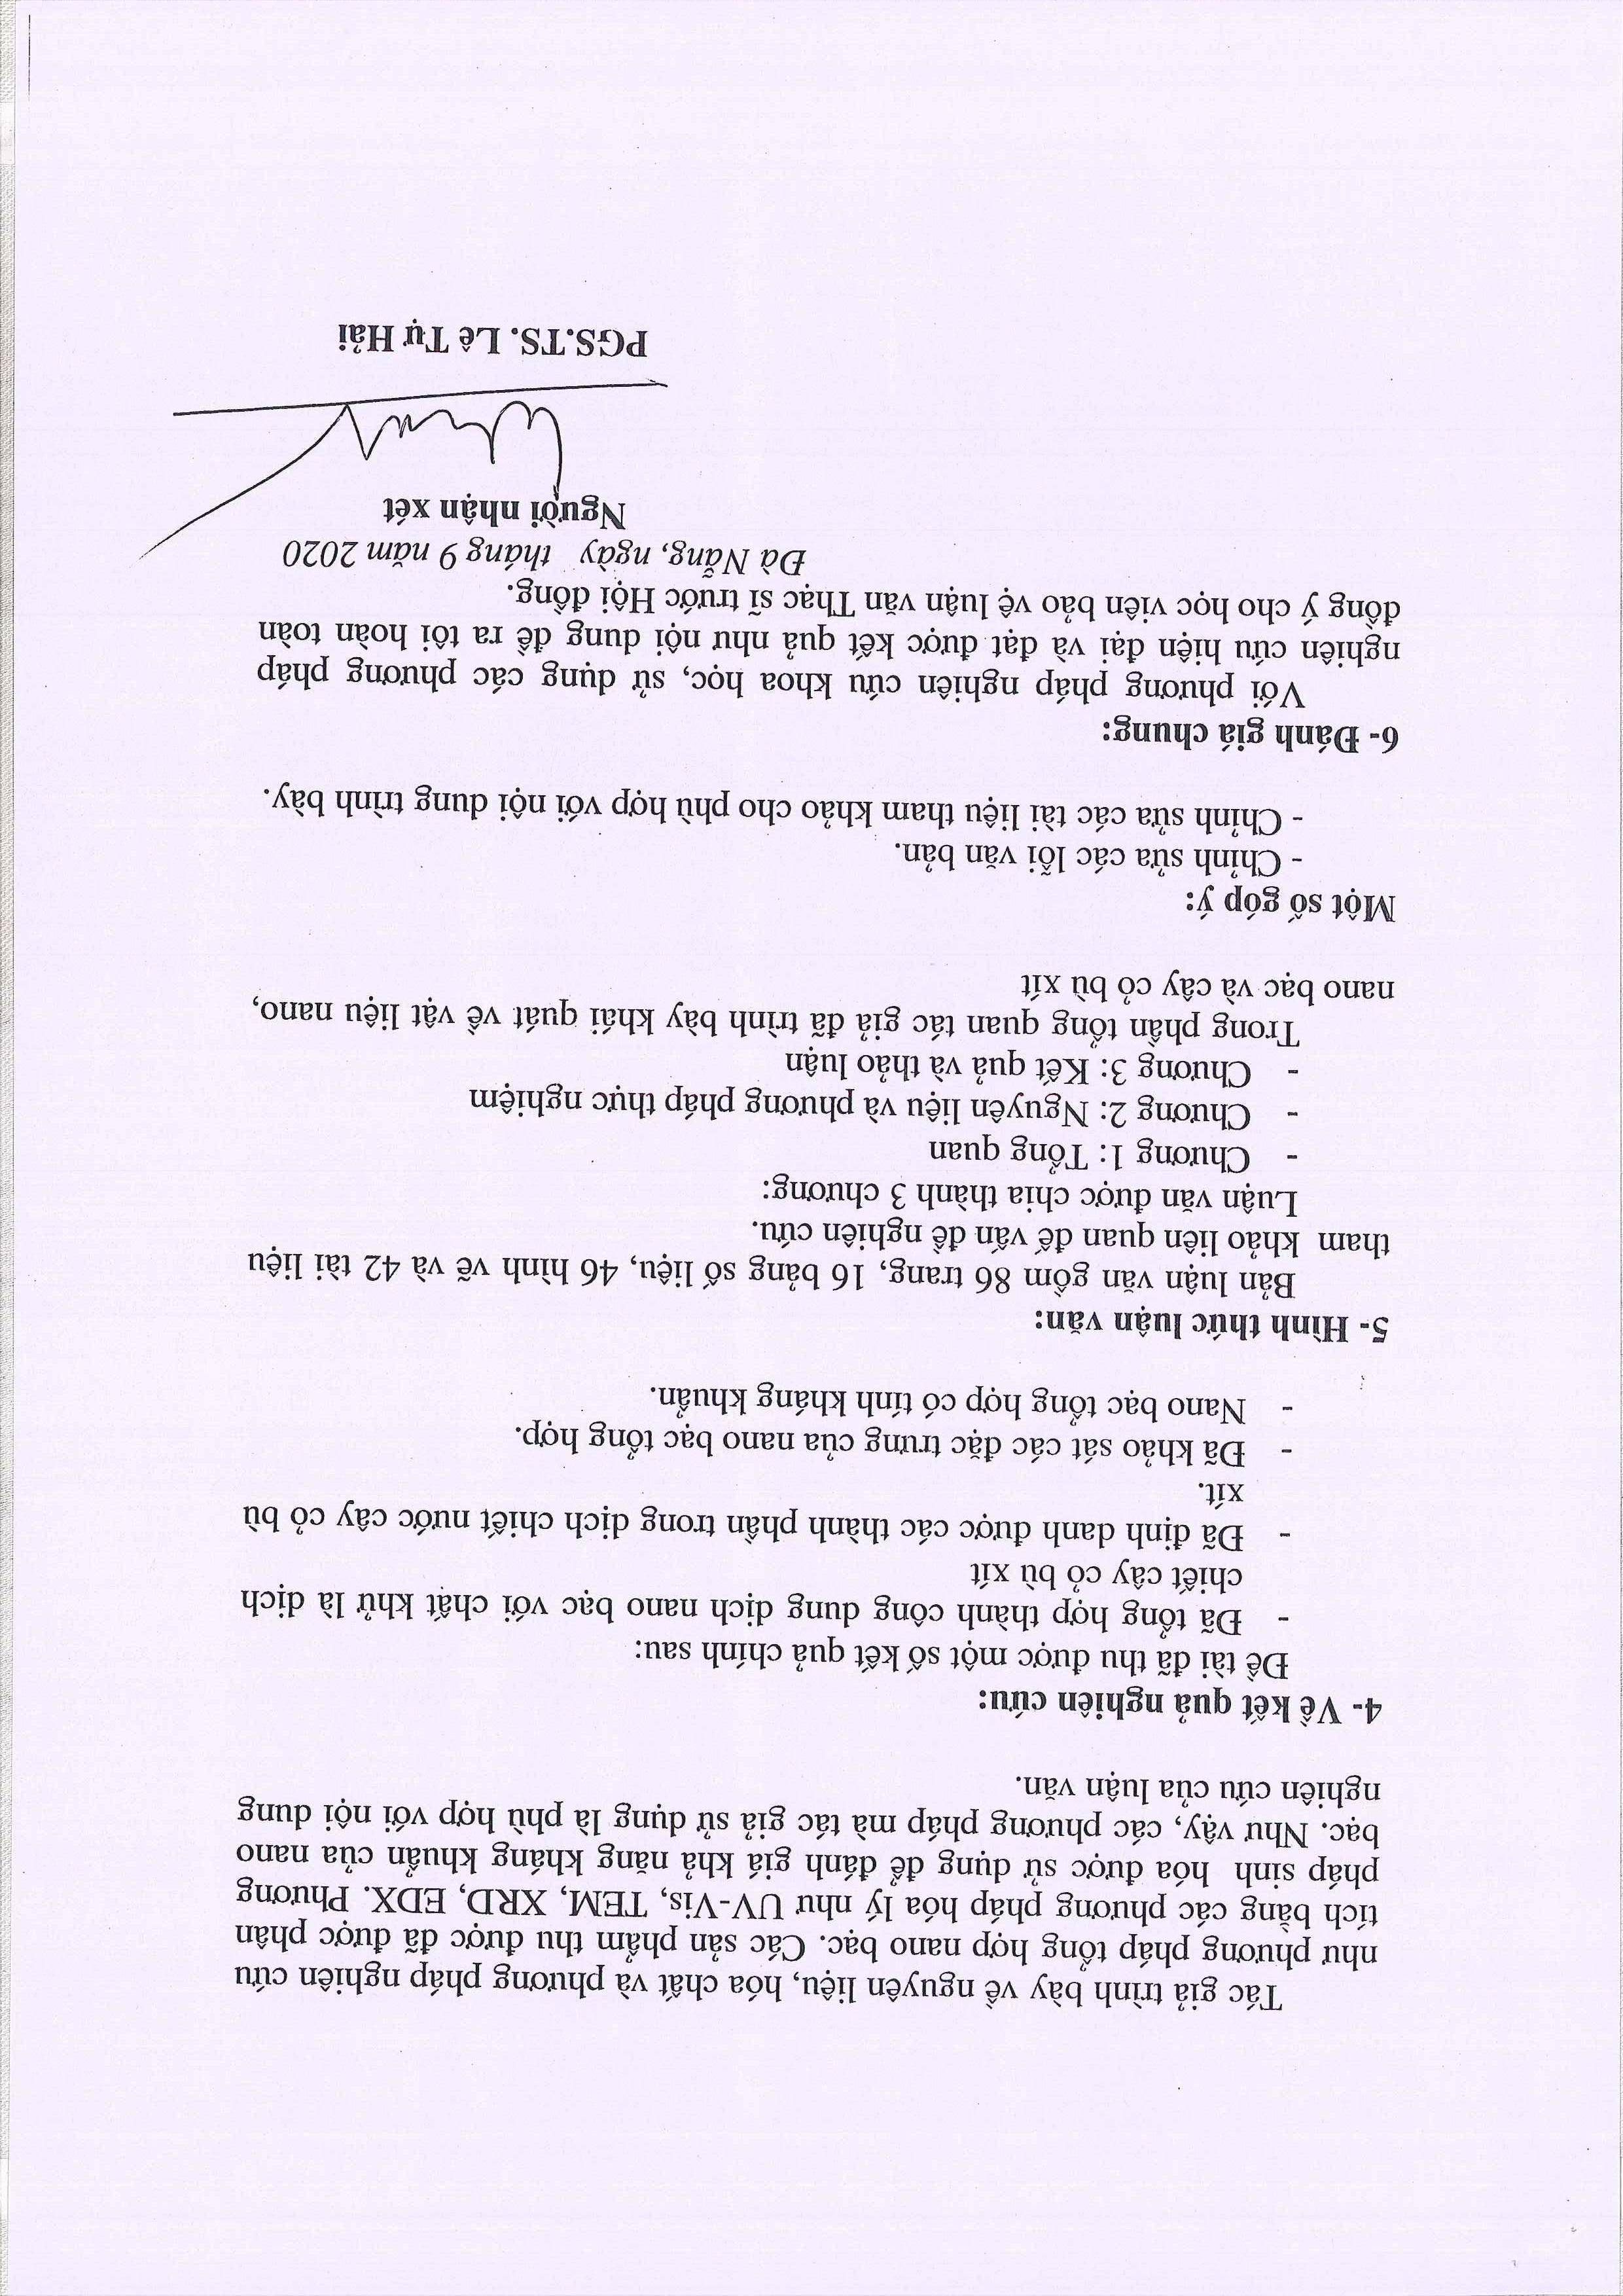 Tác giả trình bày về nguyên liệu, hóa chất và phương pháp nghiên cứu
như phương pháp tổng hợp nano bạc. Các sản phẩm thu được đã được phân
tích bằng các phương pháp hóa lý như UV-Vis, TEM, XRD, EDX. Phương
pháp sinh hóa được sử dụng để đánh giá khả năng kháng khuẩn của nano
bạc. Như vậy, các phương pháp mà tác giả sử dụng là phù hợp với nội dung
nghiên cứu của luận văn.
4- Về kết quả nghiên cứu:
Đề tài đã thu được một số kết quả chính sau:
- Đã tổng hợp thành công dung dịch nano bạc với chất khử là dịch
chiết cây cỏ bù xít
- Đã định danh được các thành phần trong dịch chiết nước cây cỏ bù
xít.
- Đã khảo sát các đặc trưng của nano bạc tổng hợp.
- Nano bạc tổng hợp có tính kháng khuẩn.
5- Hình thức luận văn:
Bản luận văn gồm 86 trang, 16 bảng số liệu, 46 hình vẽ và 42 tài liệu
tham khảo liên quan đế vấn đề nghiên cứu.
Luận văn được chia thành 3 chương:
- Chương 1: Tổng quan
- Chương 2: Nguyên liệu và phương pháp thực nghiệm
- Chương 3: Kết quả và thảo luận
Trong phần tổng quan tác giả đã trình bày khái quát về vật liệu nano,
nano bạc và cây cỏ bù xít
Một số góp ý:
- Chỉnh sửa các lỗi văn bản.
- Chỉnh sửa các tài liệu tham khảo cho phù hợp với nội dung trình bày.
6- Đánh giá chung:
Với phương pháp nghiên cứu khoa học, sử dụng các phương pháp
nghiên cứu hiện đại và đạt được kết quả như nội dung đề ra tôi hoàn toàn
đồng ý cho học viên bảo vệ luận văn Thạc sĩ trước Hội đồng.
Đà Nẵng, ngày tháng 9 năm 2020
Người nhận xét
PGS.TS. Lê Tự Hải